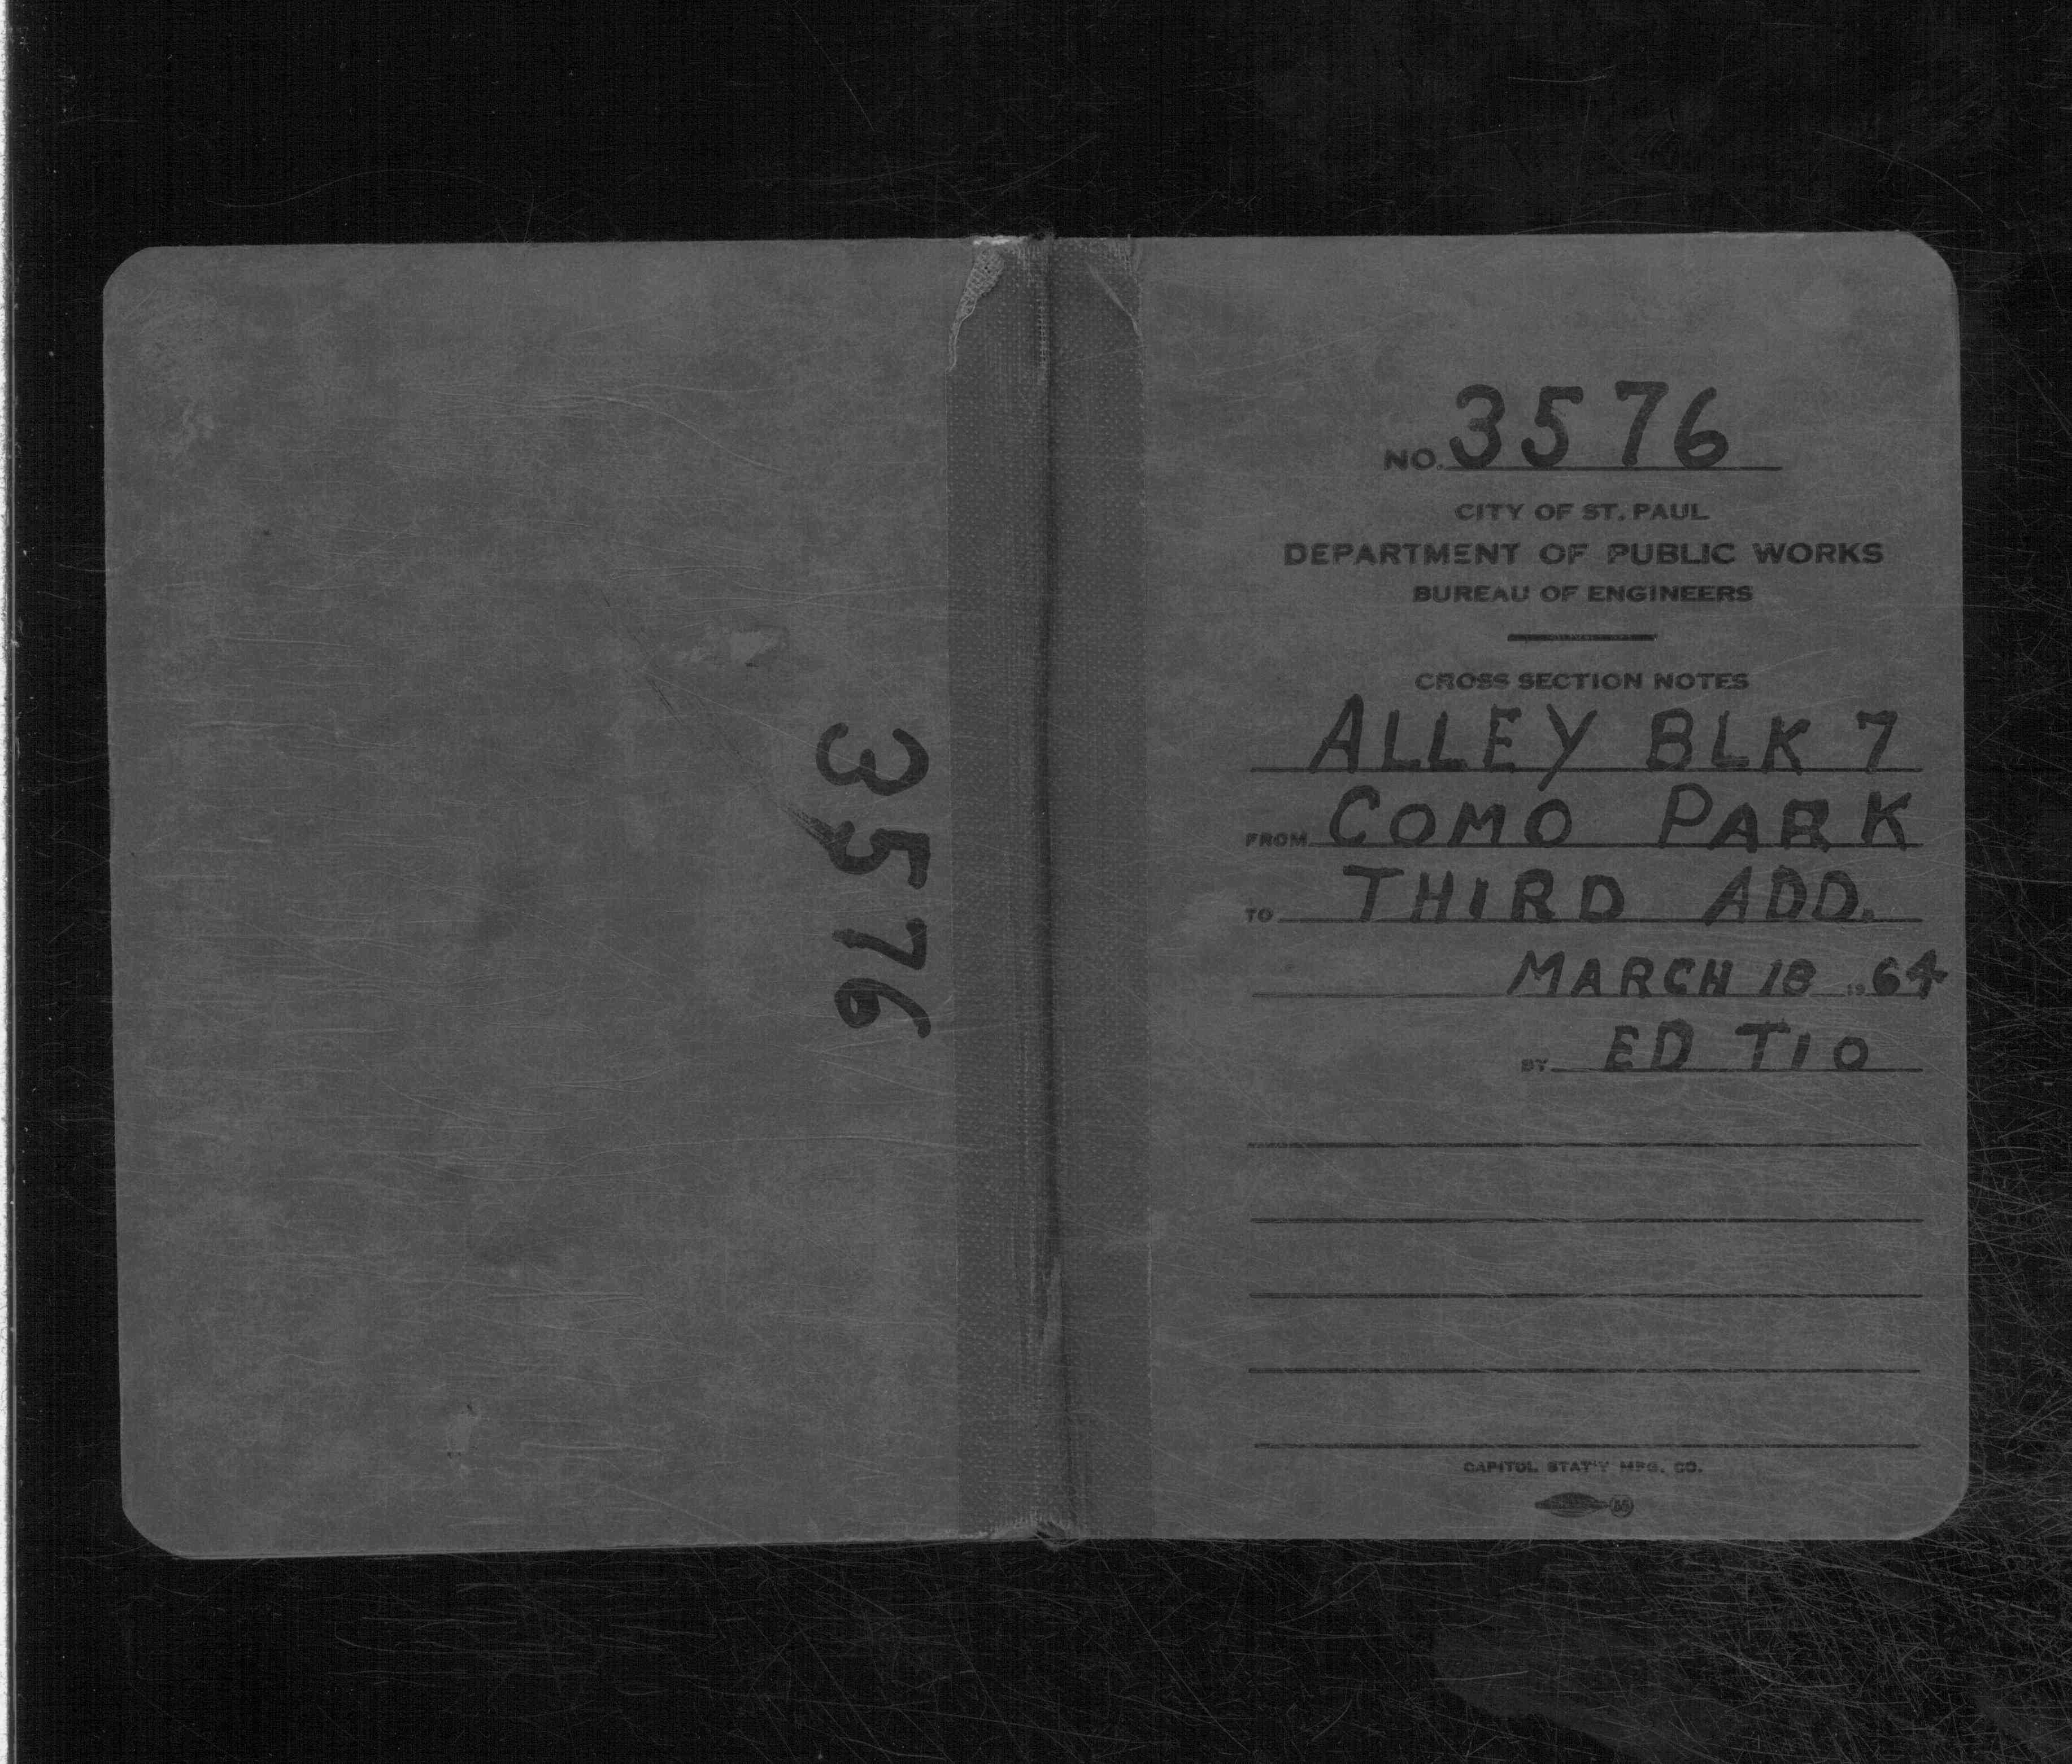 3576
NO. 3576
CITY OF ST. PAUL
DEPARTMENT OF PUBLIC WORKS
BUREAU OF ENGINEERS
CROSS SECTION NOTES
ALLEY BLK 7
FROM COMO PARK
TO THIRD ADD.
MARCH 18 1964
BY ED TIO
CAPITOL STAT'Y MFG. CO.